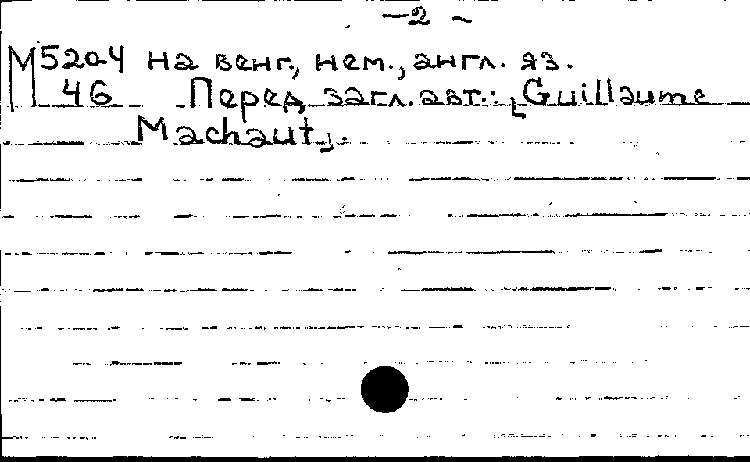 —2—
М520-4 на венг., нем., англ. яз.
46 Перед загл. авт.: [Guillaume
Machaut].